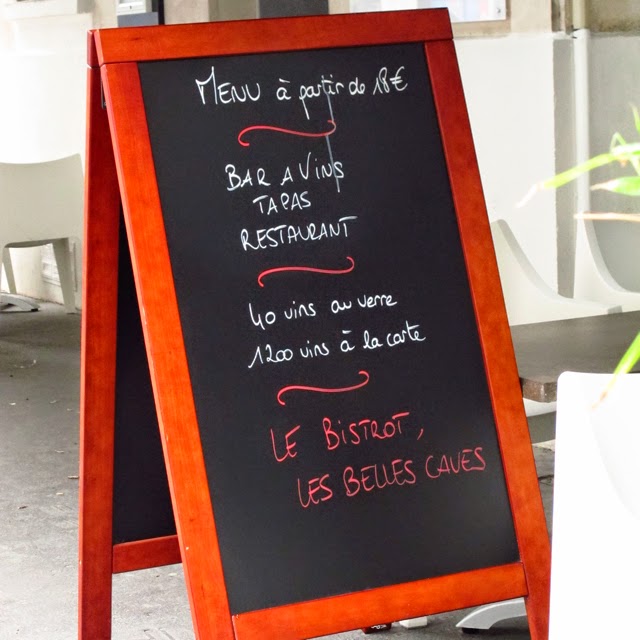 MENU à partir de 18€
BAR A VINS
TAPAS
RESTAURANT
40 vins au verre
1200 vins à la carte
LE BISTROT,
LES BELLES CAVES